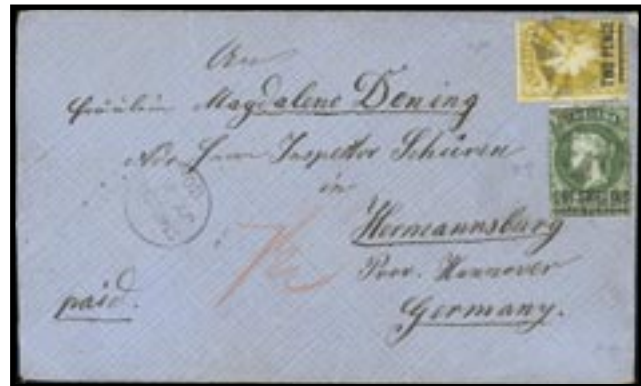 TWO PENCE
An
Fräulein Magdalene Dening
Adr. Herrn Inspektor Schüren
in
Hermannsburg
Prov. Hannover
Germany.
paid.
7½